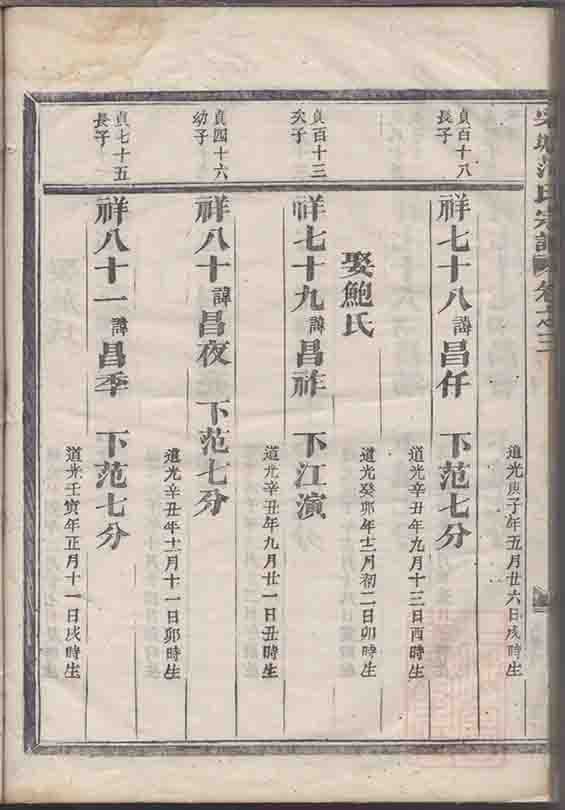 范氏宗譜 卷之三
道光庚子年五月廿六日戌時生
貞百十八
長子
祥七十八諱昌仟 下范七分
道光辛丑年九月十三日酉時生
娶鮑氏
道光癸卯年十二月初二日卯時生
貞百十三
次子
祥七十九諱昌祚 下江演
道光辛丑年九月廿一日丑時生
貞四十六
幼子
祥八十諱昌夜 下范七分
道光辛丑年十一月十一日卯時生
貞七十五
長子
祥八十一諱昌季 下范七分
道光壬寅年正月十一日戌時生